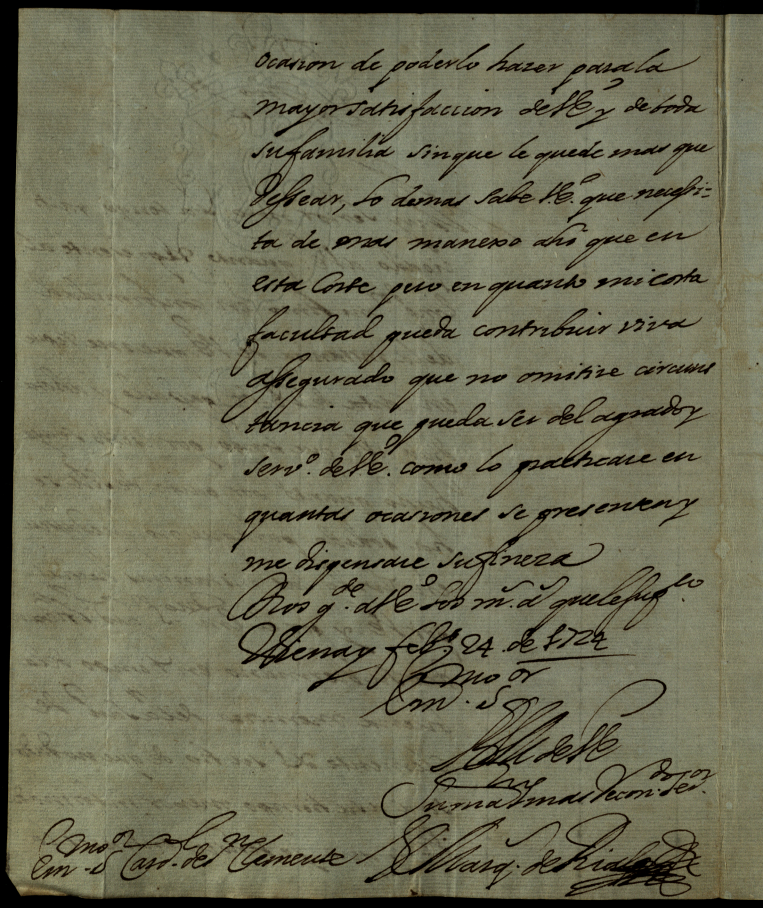 ocasion de poderlo hazer para la
mayor satisfaccion de VE.ª y de toda
su familia sin que le quede mas que
dessear, lo demas sabe V.E.ª que necessi=
ta de mas manexo aun que en
esta Corte pero en quanto mi corta
facultad pueda contribuir viva
assegurado que no omitire circuns
tancia que pueda ser del agrado y
serv.º de VE.ª como lo practicare en
quantas ocasiones se presenten y
me dispensare su fineza
Dios g.de a VE.ª los m.s a.s que le sup.co
Viena y feb.º 24 de 1724
Em.mo S.or
BLM de VE
su mas recon.do ser.or
El Marq.s de Rialp
Em.mo S.or Card.l Cienfuegos